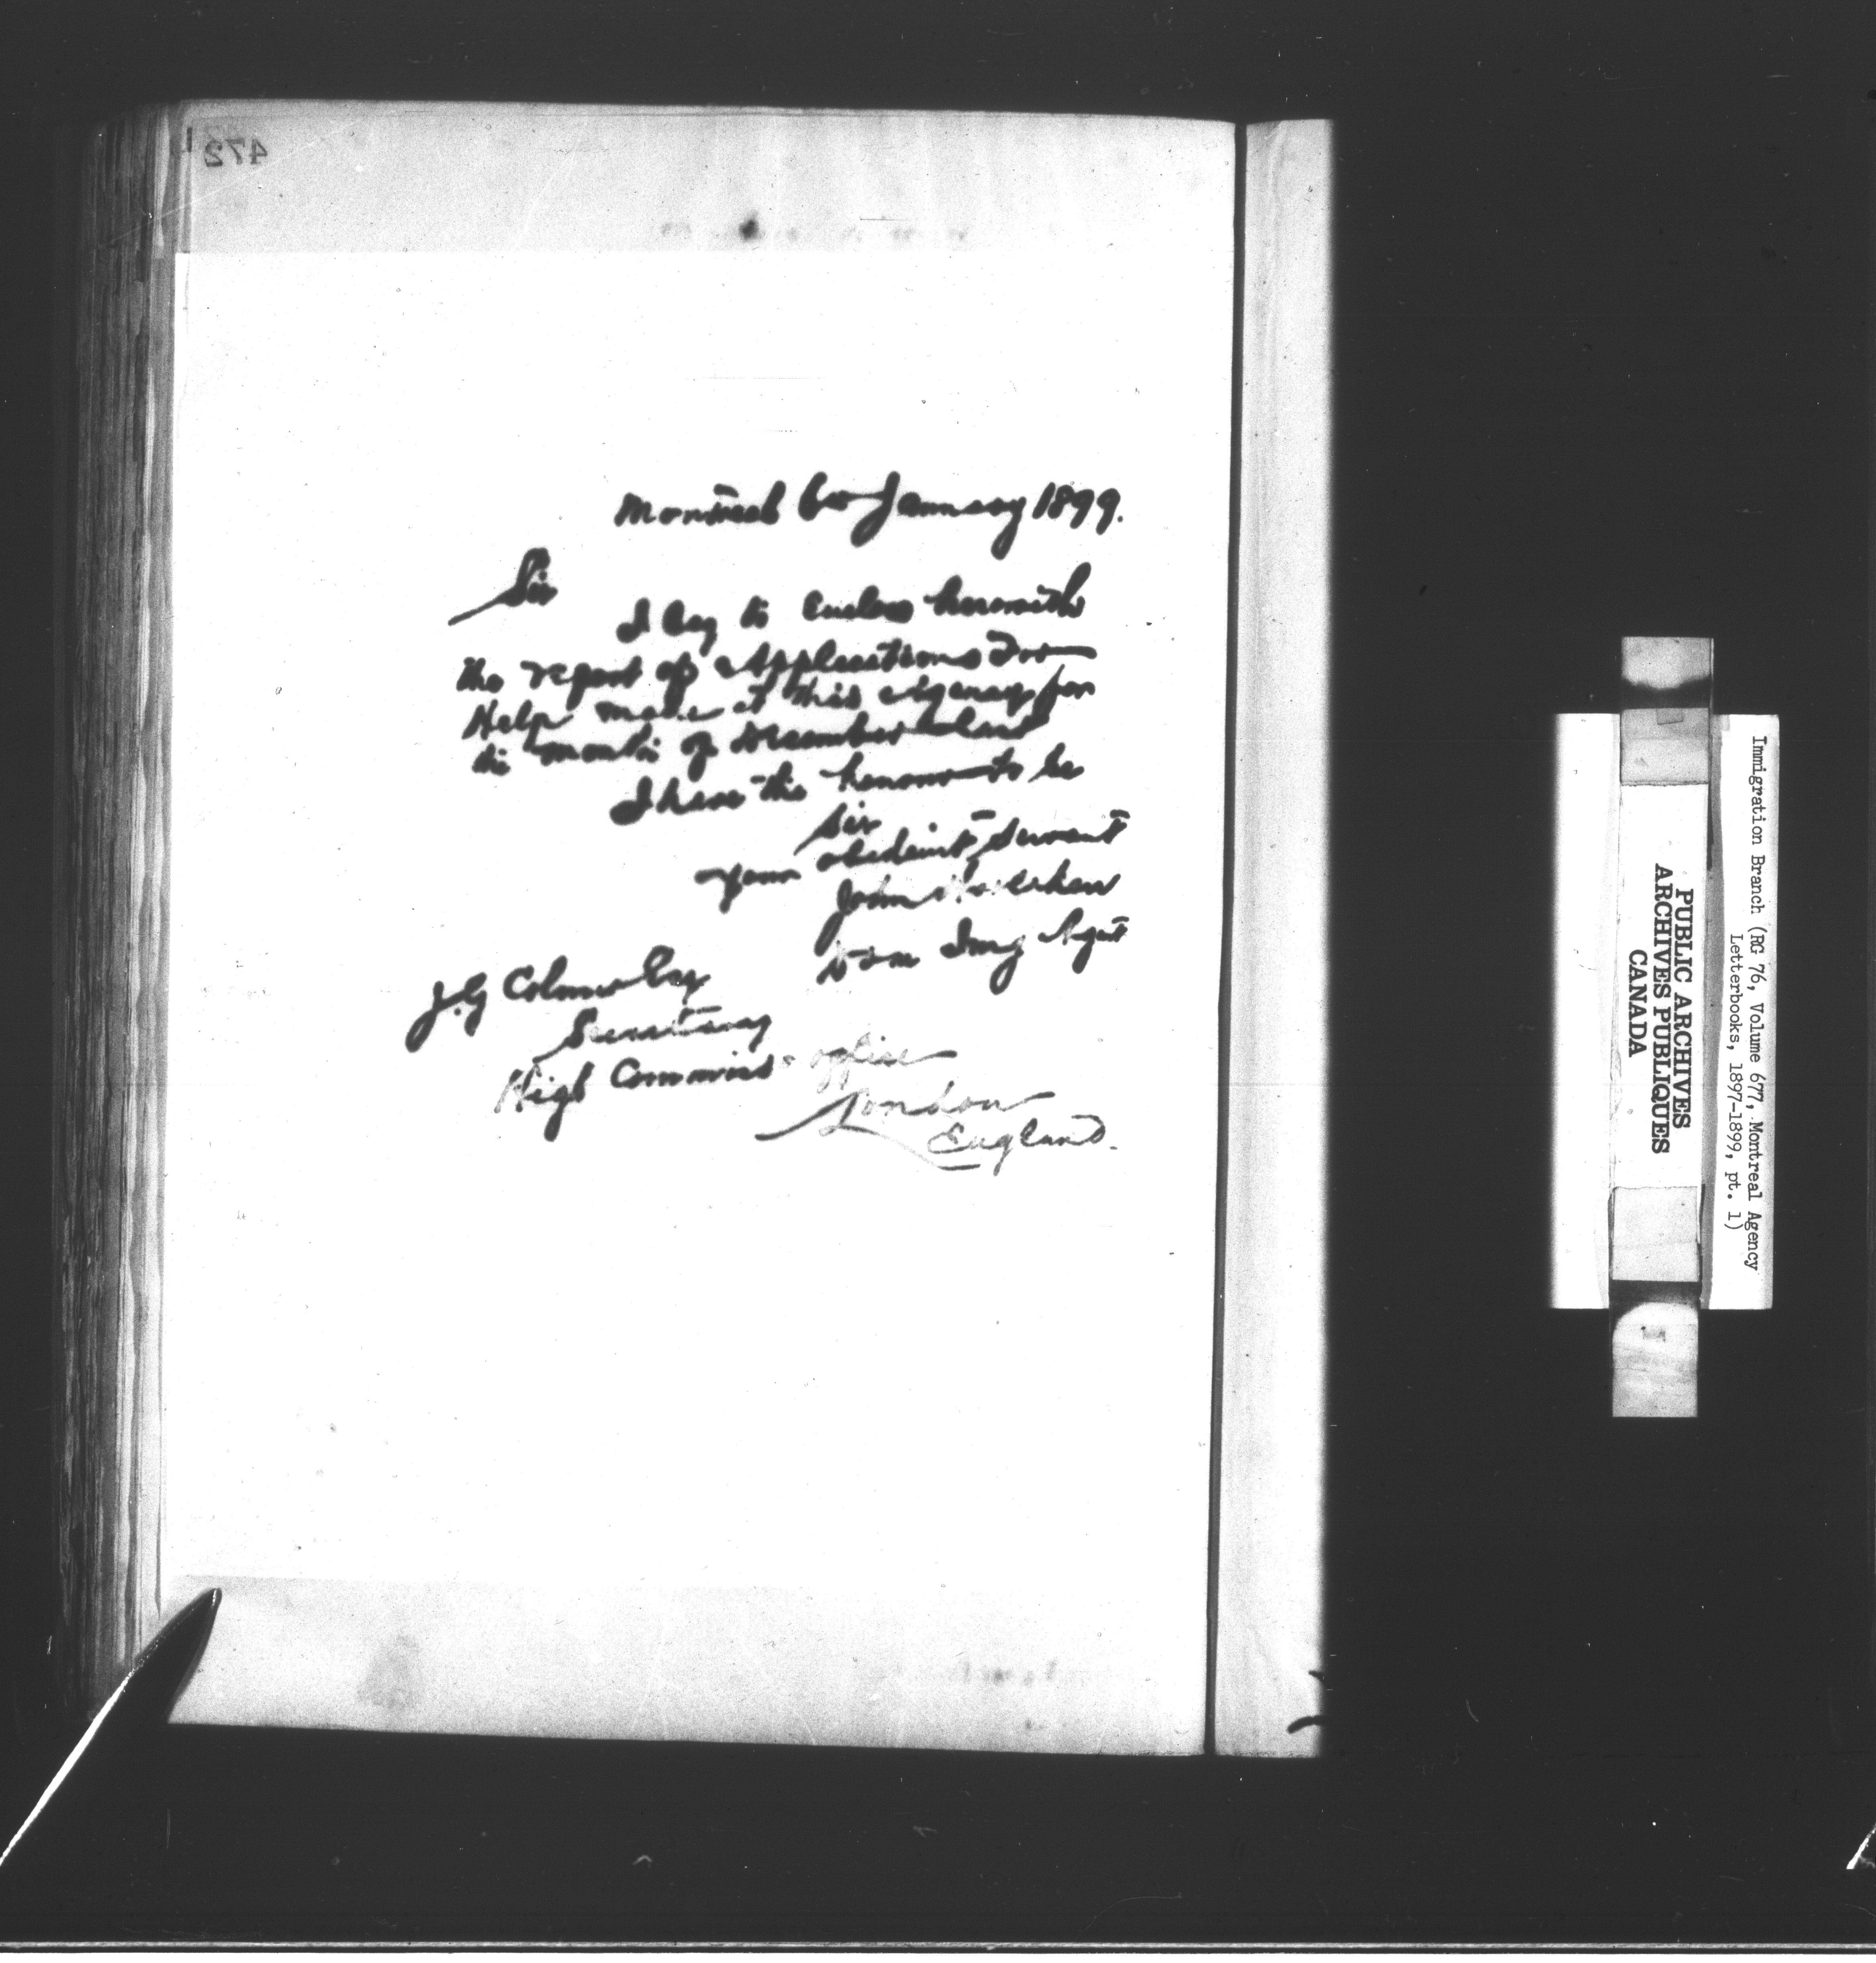 472
Montreal 6th January 1899.
Sir
I beg to enclose herewith
the report of Applications For
Help made at this Agency for
the month of December last
I have the honour to be
Sir
your obedient Servant
John Hoolahan
Dom Img Agent
J.G Colmer Esq
Secretary
High Commiss: office
London
England.
Immigration Branch (RG 76, Volume 677, Montreal Agency
Letterbooks, 1897-1899, pt. 1)
PUBLIC ARCHIVES
ARCHIVES PUBLIQUES
CANADA